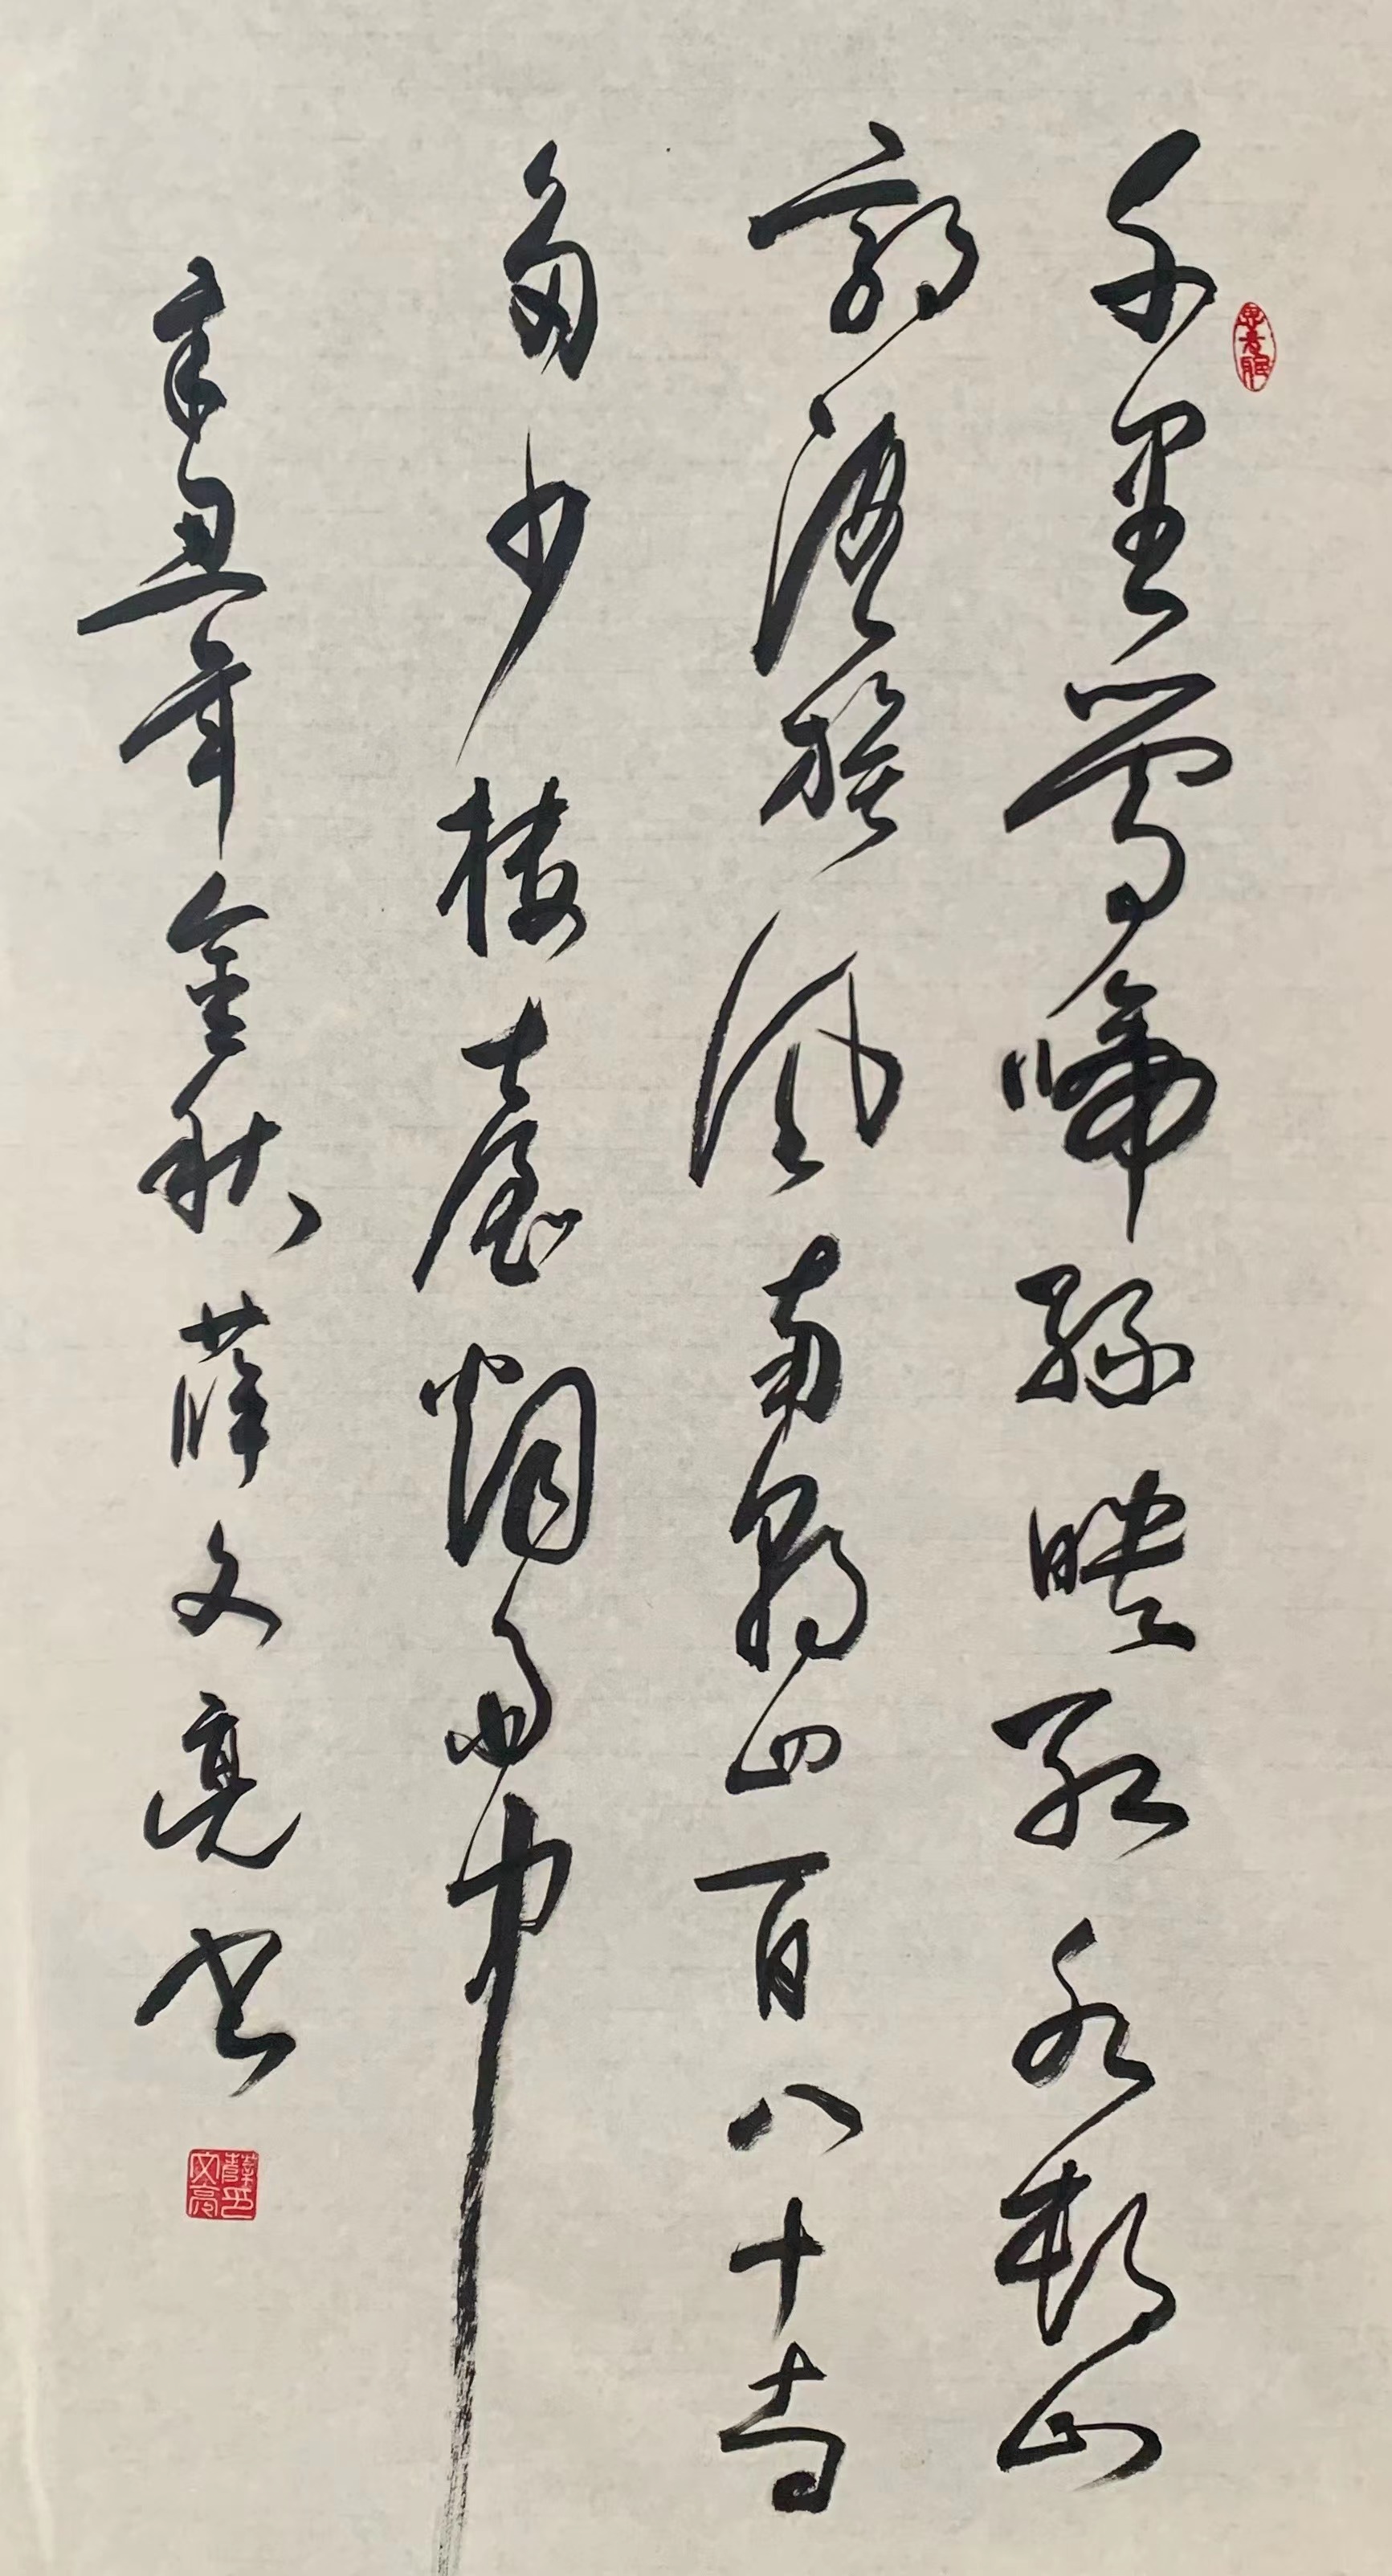 千里莺啼绿映红水村山
郭酒旗风南朝四百八十寺
多少楼臺烟雨中
辛丑年金秋薛文亮书
薛印文亮